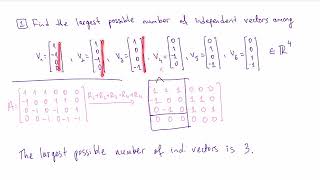 1 Find the largest possible number of independent vectors among
V₁ = [1 -1 0 0], V₂ = [1 0 -1 0], V₃ = [1 0 0 -1], V₄ = [0 1 -1 0], V₅ = [0 1 0 -1], V₆ = [0 0 1 -1] ∈ ℝ⁴
A = R₁+R₂+R₃+R₄→R₄
1 1 1 0 0 0
-1 0 0 1 1 0
0 -1 0 -1 0 1
0 0 -1 0 -1 -1
The largest possible number of ind. vectors is 3.